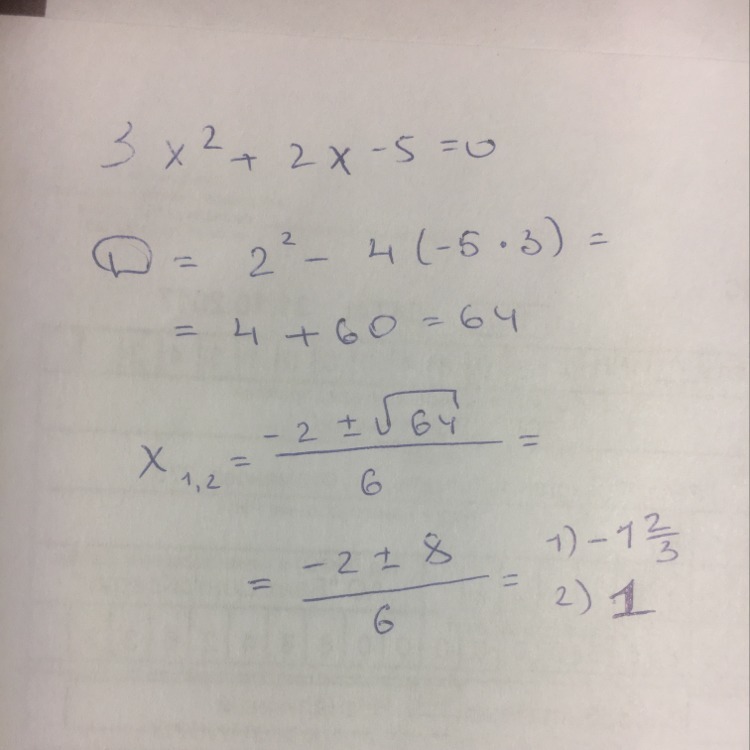 3x² + 2x - 5 = 0
D = 2² - 4(-5 · 3) =
= 4 + 60 = 64
x₁,₂ = (-2 ± √64)/6 =
= (-2 ± 8)/6 = 1) -1 2/3
2) 1